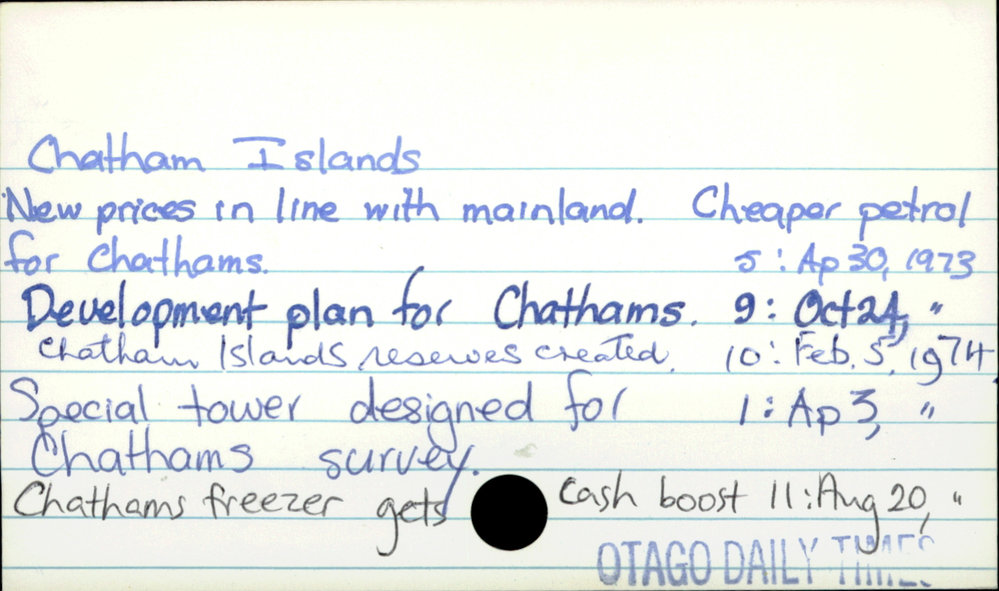 Chatham Islands
New prices in line with mainland. Cheaper petrol
for Chathams. 5 : Ap 30, 1973
Development plan for Chathams. 9 : Oct 24, "
Chatham Islands reserves created. 10 : Feb. 5, 1974
Special tower designed for 1 : Ap 3, "
Chathams survey.
Chathams freezer gets cash boost 11 : Aug 20, "
OTAGO DAILY TIMES